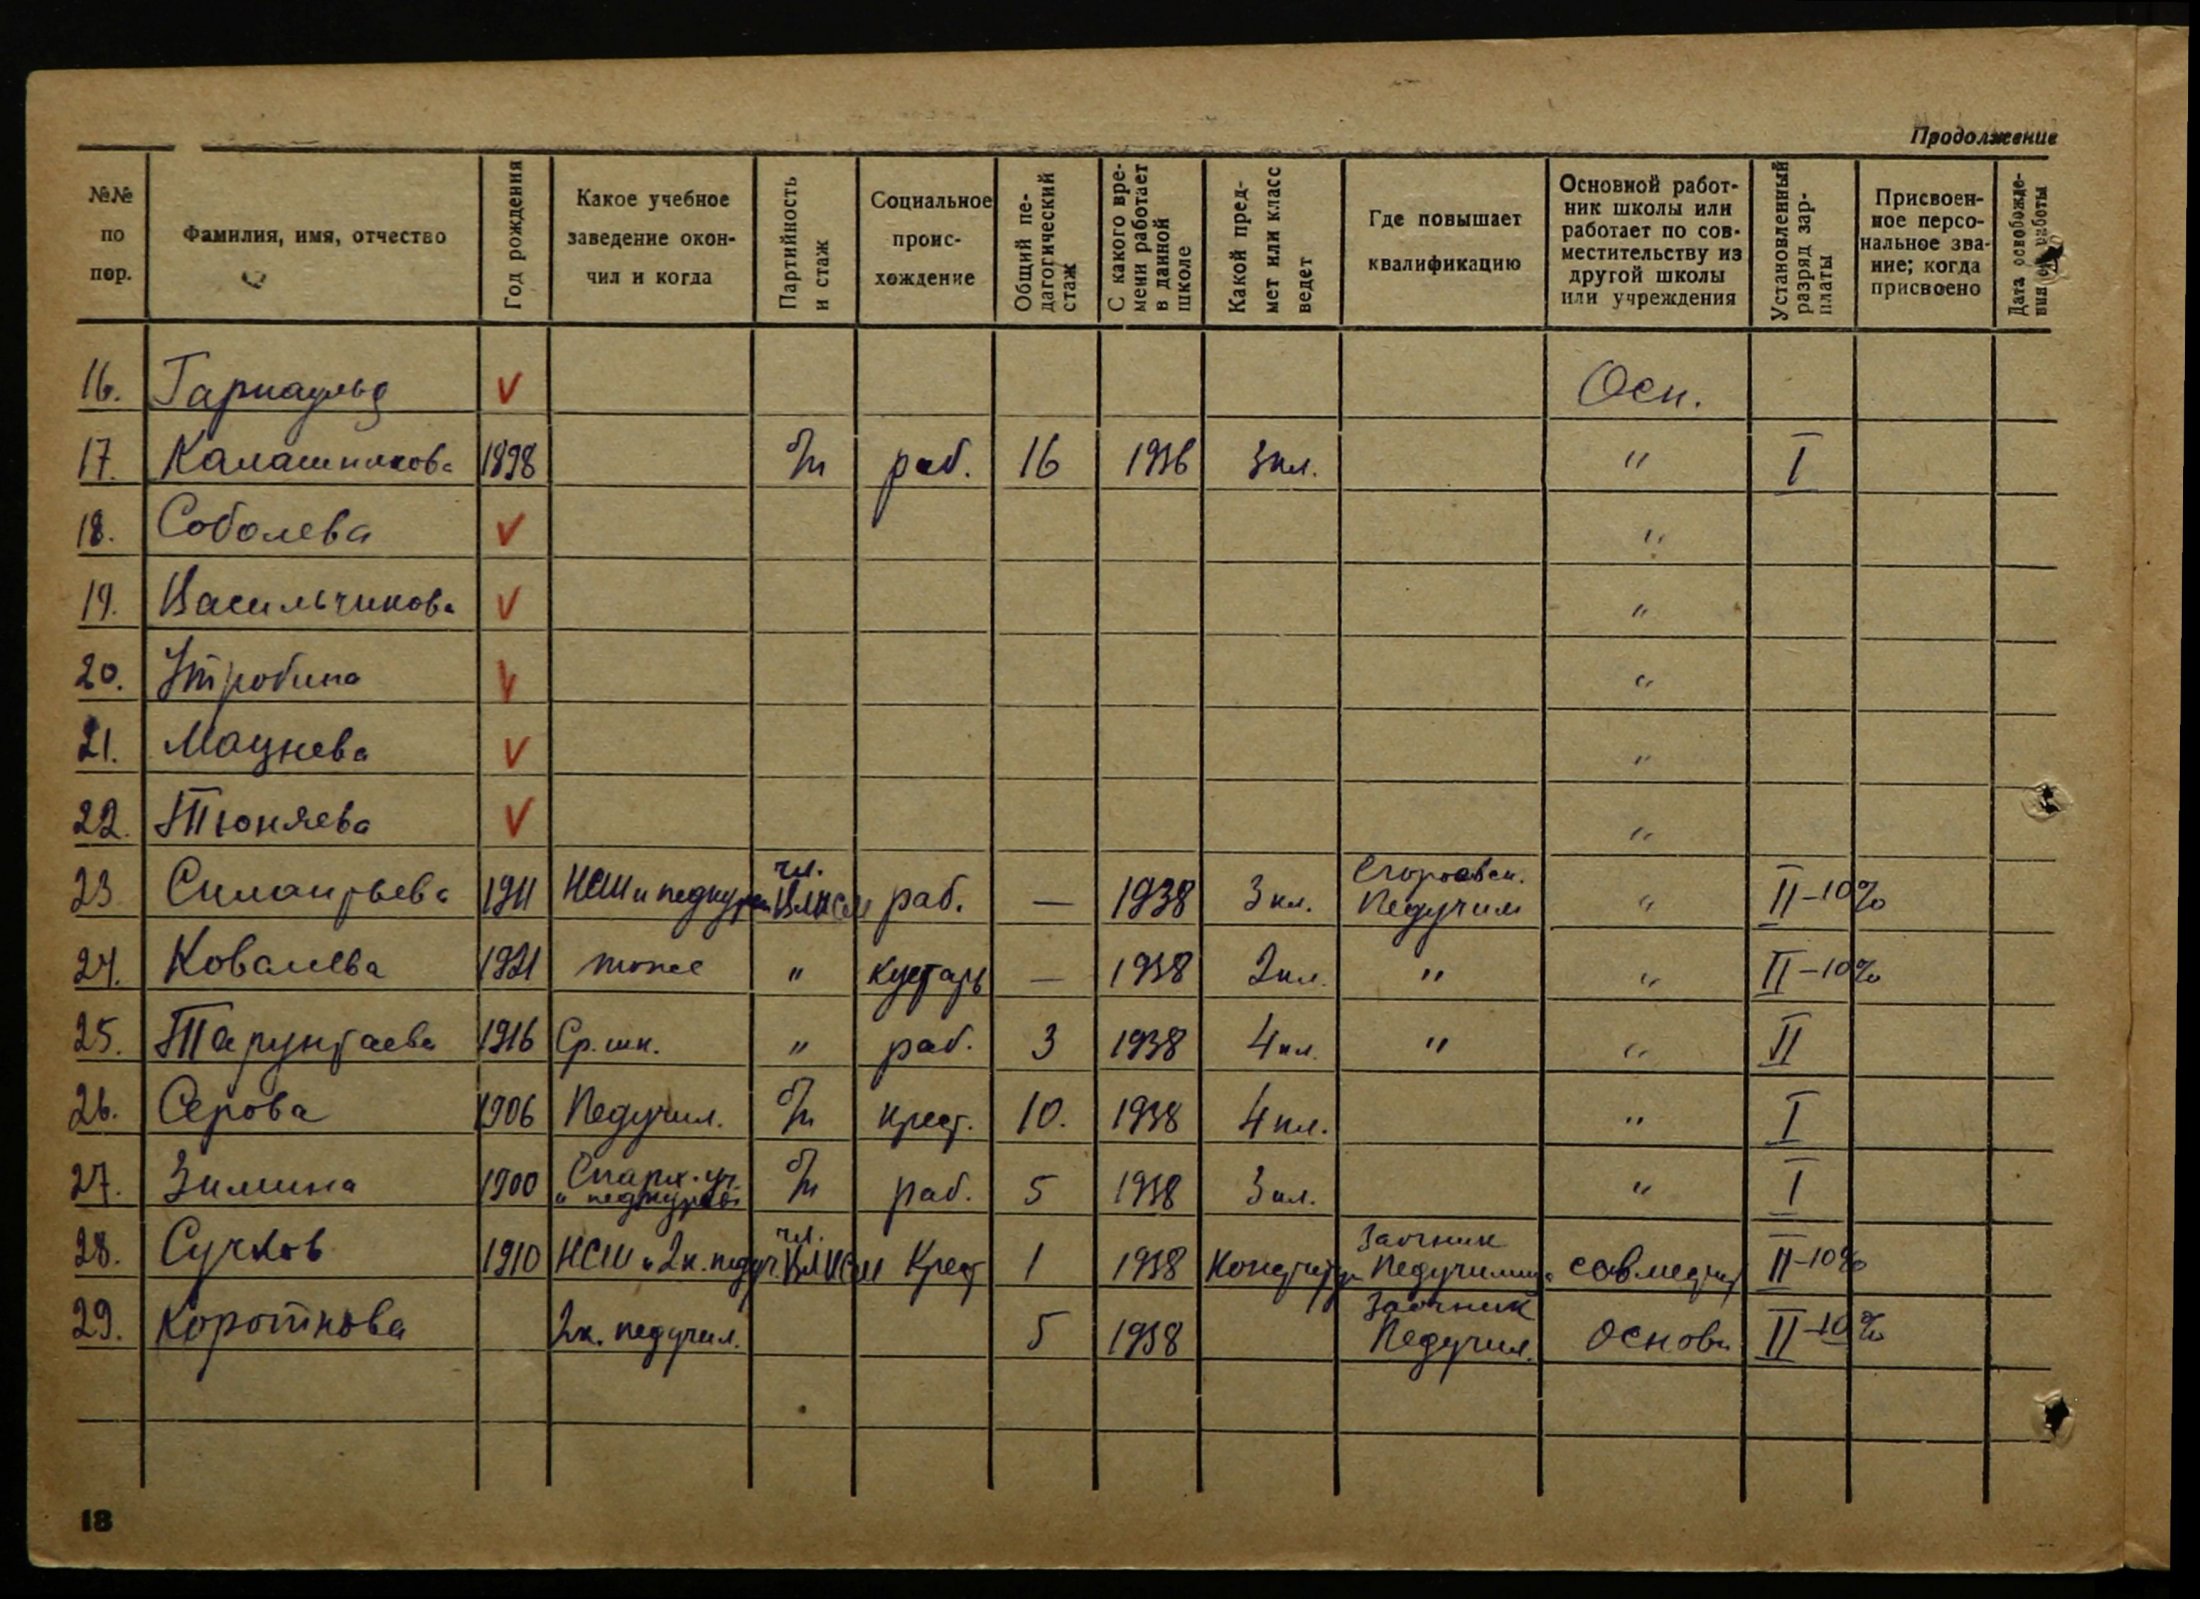 Продолжение
№№ по пор. Фамилия, имя, отчество Год рождения Какое учебное заведение окончил и когда Партийность и стаж Социальное происхождение Общий педагогический стаж С какого времени работает в данной школе Какой предмет или класс ведет Где повышает квалификацию Основной работник школы или работает по совместительству из другой школы или учреждения Установленный разряд зарплаты Присвоенное персональное звание; когда присвоено Дата освобождения от работы
16. V Осн.
17. Калашникова 1898 б/п раб. 16 1936 3 кл. " I
18. Соболева V "
19. Васильчикова V "
20. Утробина V "
21. Мацнева V "
22. Тюняева V "
23 Силантьева НСШ и педкурсы чл. ВЛКСМ раб. — 1938 3 кл. Егорьевск. Педучил " II -10%
24. Ковалева 1921 тоже " кустарь — 1938 2 кл. " " II -10%
25. Тарунтаева 1916 Ср. шк. " раб. 3 1938 4 кл. " " II
26. Серова 1906 Педучил. б/п крест. 10. 1938 4 кл. " I
27. Зимина 1900 Епарх. уч. и педкурсы б/п раб. 5 1938 3 кл. " I
28. Сучков 1910 НСШ и 2 к. педуч. чл. ВЛКСМ Крест 1 1938 Заочник Педучилища совместит II -10%
29. Короткова 2 к. педучил. 5 1938 Заочник Педучил. Основн II -10%
18